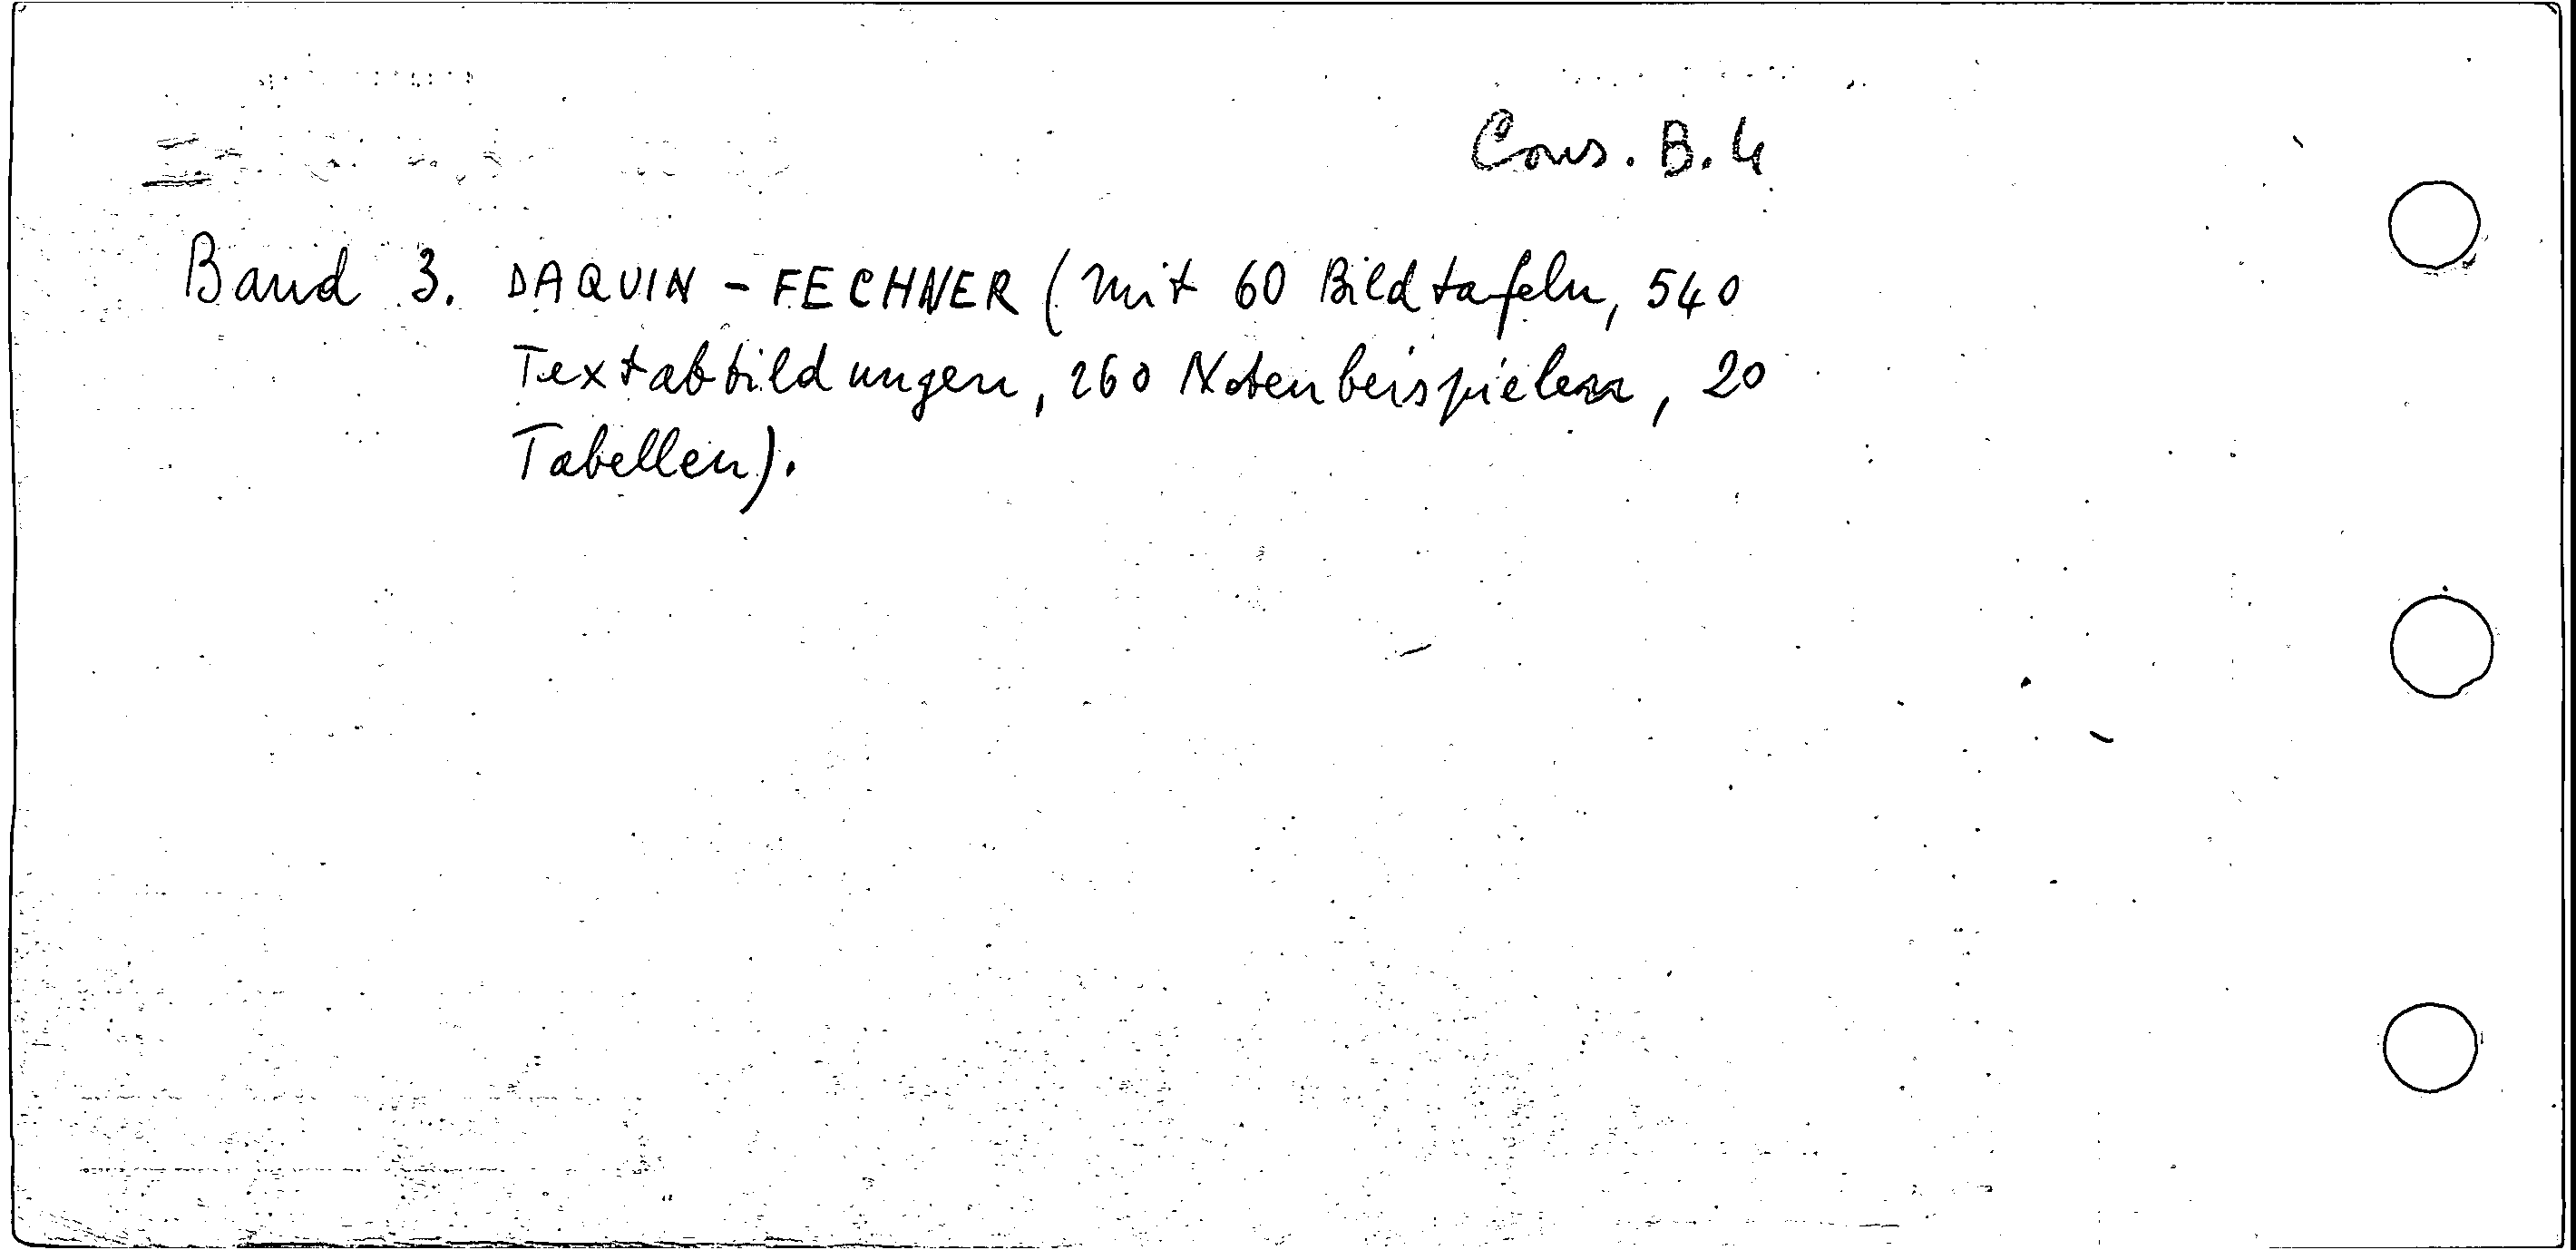 Cons. B. 4
Band 3. DAQUIN - FECHNER (mit 60 Bildtafeln, 540
Textabbildungen, 260 Notenbeispielen, 20
Tabellen).